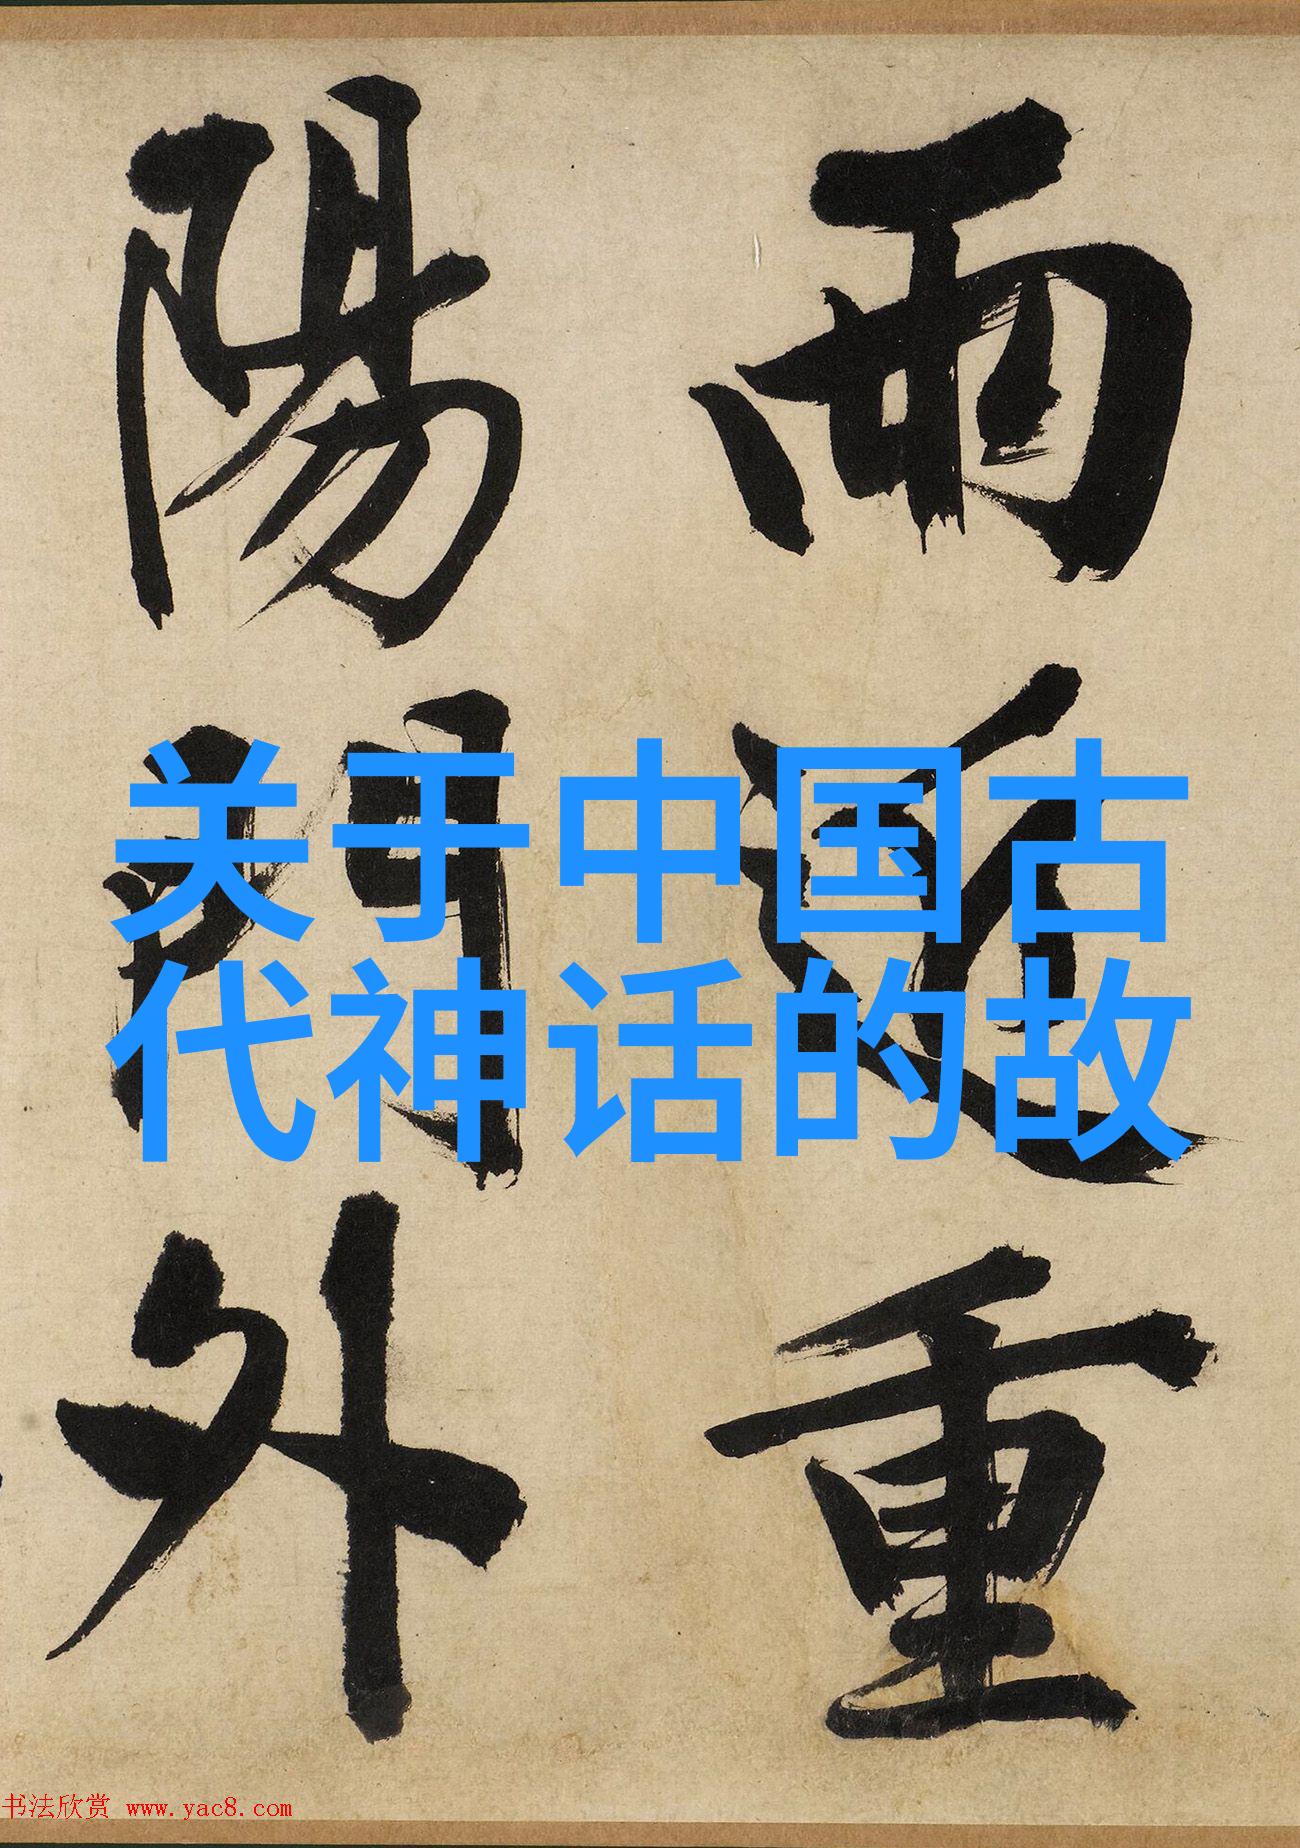 雨近重
陽門外
关于中国古
代神话的故
书法欣赏 www.yac8.com